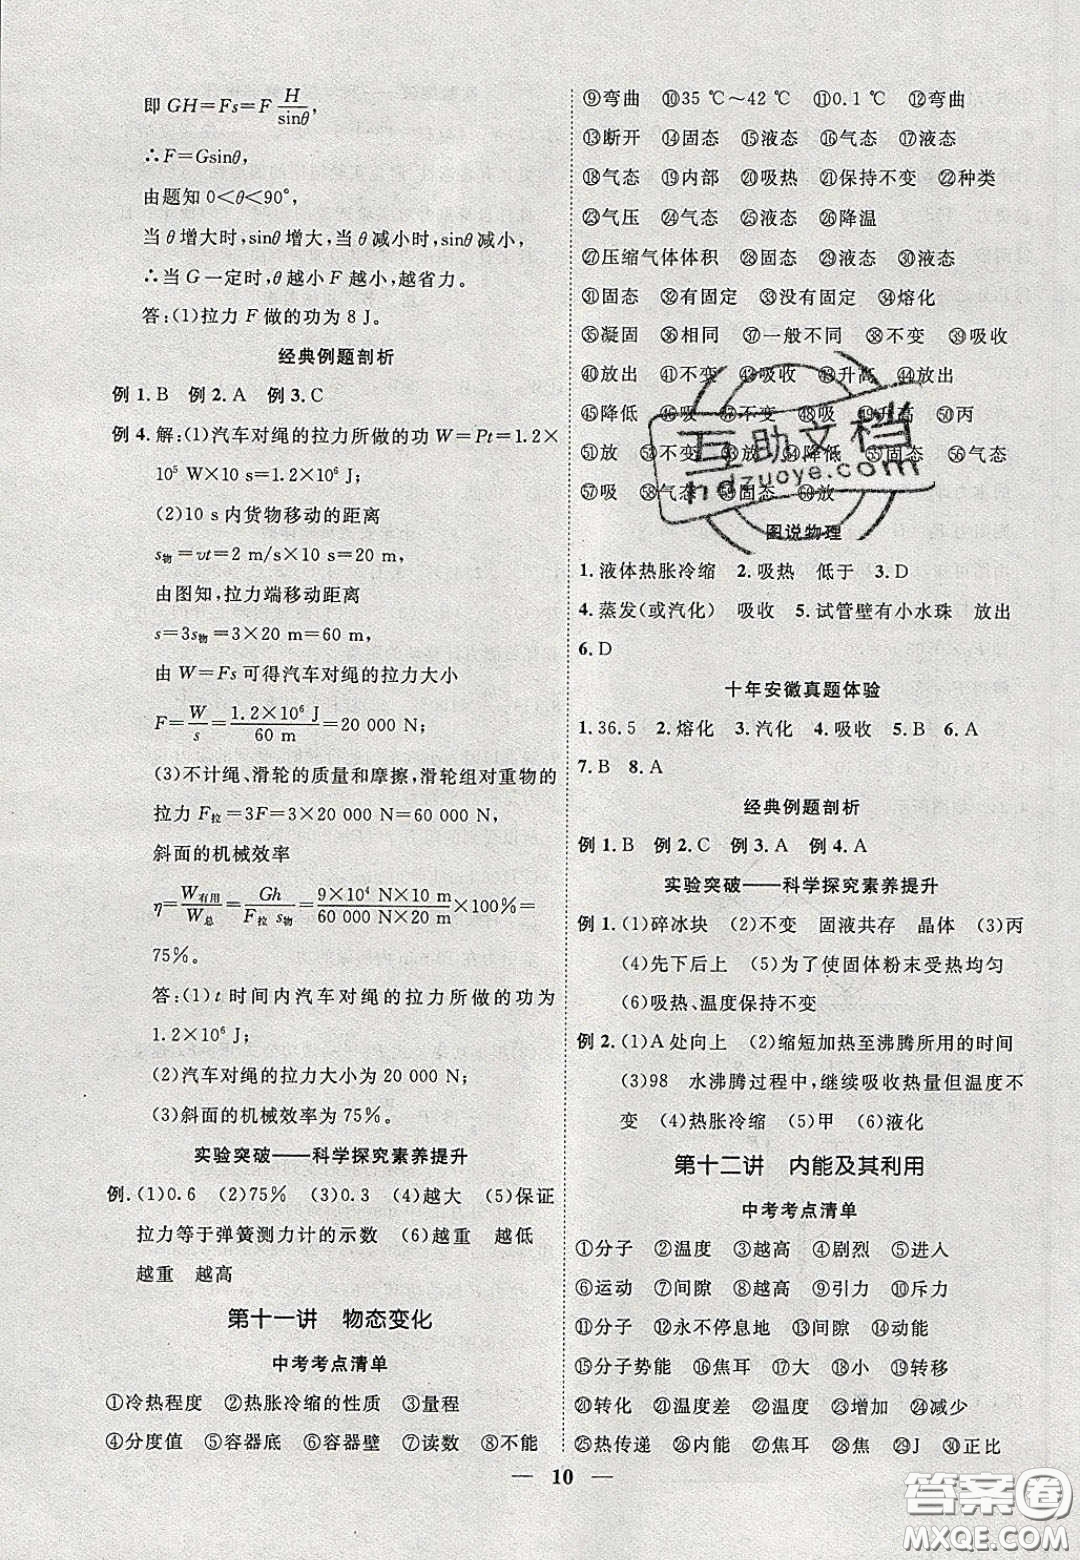 即 GH=Fs=F H/sinθ,
∴F=Gsinθ,
由题知 0<θ<90°,
当 θ 增大时,sinθ 增大,当 θ 减小时,sinθ 减小,
∴当 G 一定时,θ 越小 F 越小,越省力。
答:(1)拉力 F 做的功为 8 J。
经典例题剖析
例 1.B 例 2.A 例 3.C
例 4.解:(1)汽车对绳的拉力所做的功 W=Pt=1.2×
10⁵ W×10 s=1.2×10⁶ J;
(2)10 s 内货物移动的距离
s物=vt=2 m/s×10 s=20 m,
由图知,拉力端移动距离
s=3s物=3×20 m=60 m,
由 W=Fs 可得汽车对绳的拉力大小
F=W/s=1.2×10⁶ J/60 m=20 000 N;
(3)不计绳、滑轮的质量和摩擦,滑轮组对重物的
拉力 F拉=3F=3×20 000 N=60 000 N,
斜面的机械效率
η=W有用/W总=Gh/F拉 s物=9×10⁴ N×10 m/60 000 N×20 m×100%=
75%。
答:(1) t 时间内汽车对绳的拉力所做的功为
1.2×10⁶ J;
(2)汽车对绳的拉力大小为 20 000 N;
(3)斜面的机械效率为 75%。
实验突破——科学探究素养提升
例.(1)0.6 (2)75% (3)0.3 (4)越大 (5)保证
拉力等于弹簧测力计的示数 (6)越重 越低
越重 越高
第十一讲 物态变化
中考考点清单
①冷热程度 ②热胀冷缩的性质 ③量程
④分度值 ⑤容器底 ⑥容器壁 ⑦读数 ⑧不能
⑨弯曲 ⑩35 ℃~42 ℃ ⑪0.1 ℃ ⑫弯曲
⑬断开 ⑭固态 ⑮液态 ⑯气态 ⑰液态
⑱气态 ⑲内部 ⑳吸热 ㉑保持不变 ㉒种类
㉓气压 ㉔气态 ㉕液态 ㉖降温
㉗压缩气体体积 ㉘固态 ㉙液态 ㉚液态
㉛固态 ㉜有固定 ㉝没有固定 ㉞熔化
㉟凝固 ㊱相同 ㊲一般不同 ㊳不变 ㊴吸收
㊵放出 ㊶不变 ㊷不变 ㊸吸收 ㊸升高 ㊹放出
㊺降低 ㊻吸 ㊼不变 ㊽吸 ㊾升高 ㊿丙
51放 52不变 53放 54降低 55固态 56气态
57吸 58气态 59固态 60放
互助文档
hdzuoye.com
图说物理
1.液体热胀冷缩 2.吸热 低于 3.D
4.蒸发(或汽化) 吸收 5.试管壁有小水珠 放出
6.D
十年安徽真题体验
1.36.5 2.熔化 3.汽化 4.吸收 5.B 6.A
7.B 8.A
经典例题剖析
例 1.B 例 2.C 例 3.A 例 4.A
实验突破——科学探究素养提升
例 1.(1)碎冰块 (2)不变 固液共存 晶体 (3)丙
(4)先下后上 (5)为了使固体粉末受热均匀
(6)吸热、温度保持不变
例 2.(1)A 处向上 (2)缩短加热至沸腾所用的时间
(3)98 水沸腾过程中,继续吸收热量但温度不
变 (4)热胀冷缩 (5)甲 (6)液化
第十二讲 内能及其利用
中考考点清单
①分子 ②温度 ③越高 ④剧烈 ⑤进入
⑥运动 ⑦间隙 ⑧越高 ⑨引力 ⑩斥力
⑪分子 ⑫永不停息地 ⑬间隙 ⑭动能
⑮分子势能 ⑯焦耳 ⑰大 ⑱小 ⑲转移
⑳转化 ㉑温度差 ㉒温度 ㉓增加 ㉔减少
㉕热传递 ㉖内能 ㉗焦耳 ㉘焦 ㉙J ㉚正比
— 10 —
答案圈
MXQE.COM